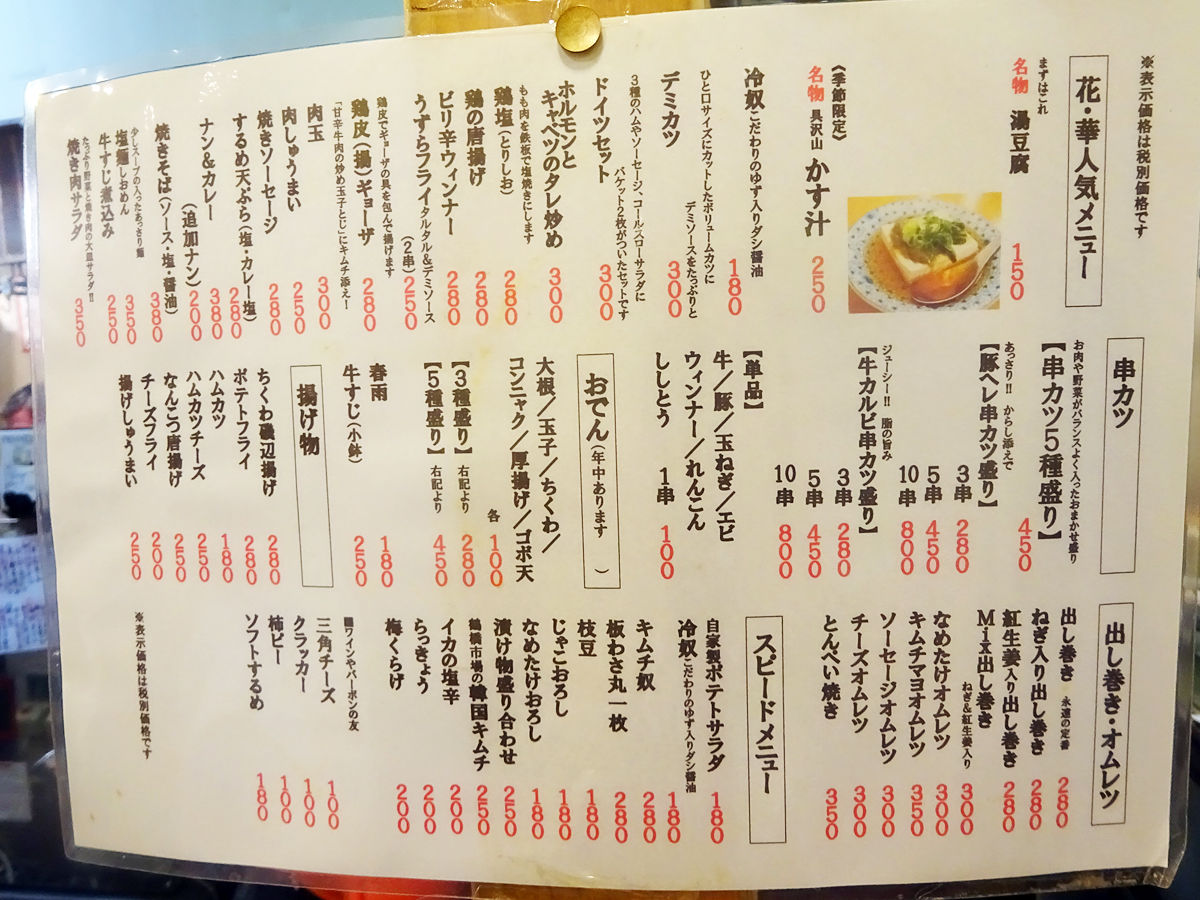 ※表示価格は税別価格です
花・華人気メニュー
まずはこれ
名物 湯豆腐 150
《季節限定》
名物 具沢山 かす汁 250
冷奴 こだわりのゆず入りダシ醤油 180
ひと口サイズにカットしたボリュームカツに
デミソースをたっぷりと
デミカツ 300
3種のハムやソーセージ、コールスローサラダに
バケット2枚がついたセットです
ドイツセット 300
ホルモンと
キャベツのタレ炒め 300
もも肉を鉄板で塩焼きにします
鶏塩(とりしお) 280
鶏の唐揚げ 280
ピリ辛ウィンナー 280
うずらフライ タルタル&デミソース
(2串) 250
鶏皮でギョーザの具を包んで揚げます
鶏皮(揚)ギョーザ 280
「甘辛牛肉の炒め玉子とじ」にキムチ添え!
肉玉 300
肉しゅうまい 250
焼きソーセージ 280
するめ天ぷら(塩・カレー塩) 280
ナン&カレー 380
(追加ナン) 200
焼きそば(ソース・塩・醤油) 380
少しスープの入ったあっさり麺
塩麺しおめん 350
牛すじ煮込み 250
たっぷり野菜と焼き肉の大皿サラダ!!
焼き肉サラダ 350
串カツ
お肉や野菜がバランスよく入ったおまかせ盛り
【串カツ5種盛り】 450
あっさり!! からし添えで
【豚ヘレ串カツ盛り】
3串 280
5串 450
10串 800
ジューシー!! 脂の旨み
【牛カルビ串カツ盛り】
3串 280
5串 450
10串 800
【単品】
牛/豚/玉ねぎ/エビ
ウィンナー/れんこん
ししとう 1串 100
おでん(年中あります)
大根/玉子/ちくわ/
コンニャク/厚揚げ/ゴボ天
各 100
【3種盛り】 右記より 280
【5種盛り】 右記より 450
春雨 180
牛すじ(小鉢) 250
揚げ物
ちくわ磯辺揚げ 280
ポテトフライ 280
ハムカツ 180
ハムカツチーズ 250
なんこつ唐揚げ 250
チーズフライ 200
揚げしゅうまい 250
出し巻き・オムレツ
出し巻き 永遠の定番 280
ねぎ入り出し巻き 280
紅生姜入り出し巻き 280
Mix出し巻き ねぎ&紅生姜入り 300
なめたけオムレツ 300
キムチマヨオムレツ 350
ソーセージオムレツ 300
チーズオムレツ 300
とんぺい焼き 350
スピードメニュー
自家製ポテトサラダ 180
冷奴 こだわりのゆず入りダシ醤油 180
キムチ奴 280
板わさ丸一枚 280
枝豆 180
じゃこおろし 180
なめたけおろし 180
漬け物盛り合わせ 250
鶴橋市場の韓国キムチ 250
イカの塩辛 200
らっきょう 200
梅くらげ 200
■ワインやバーボンの友
三角チーズ 100
クラッカー 100
柿ピー 100
ソフトするめ 180
※表示価格は税別価格です